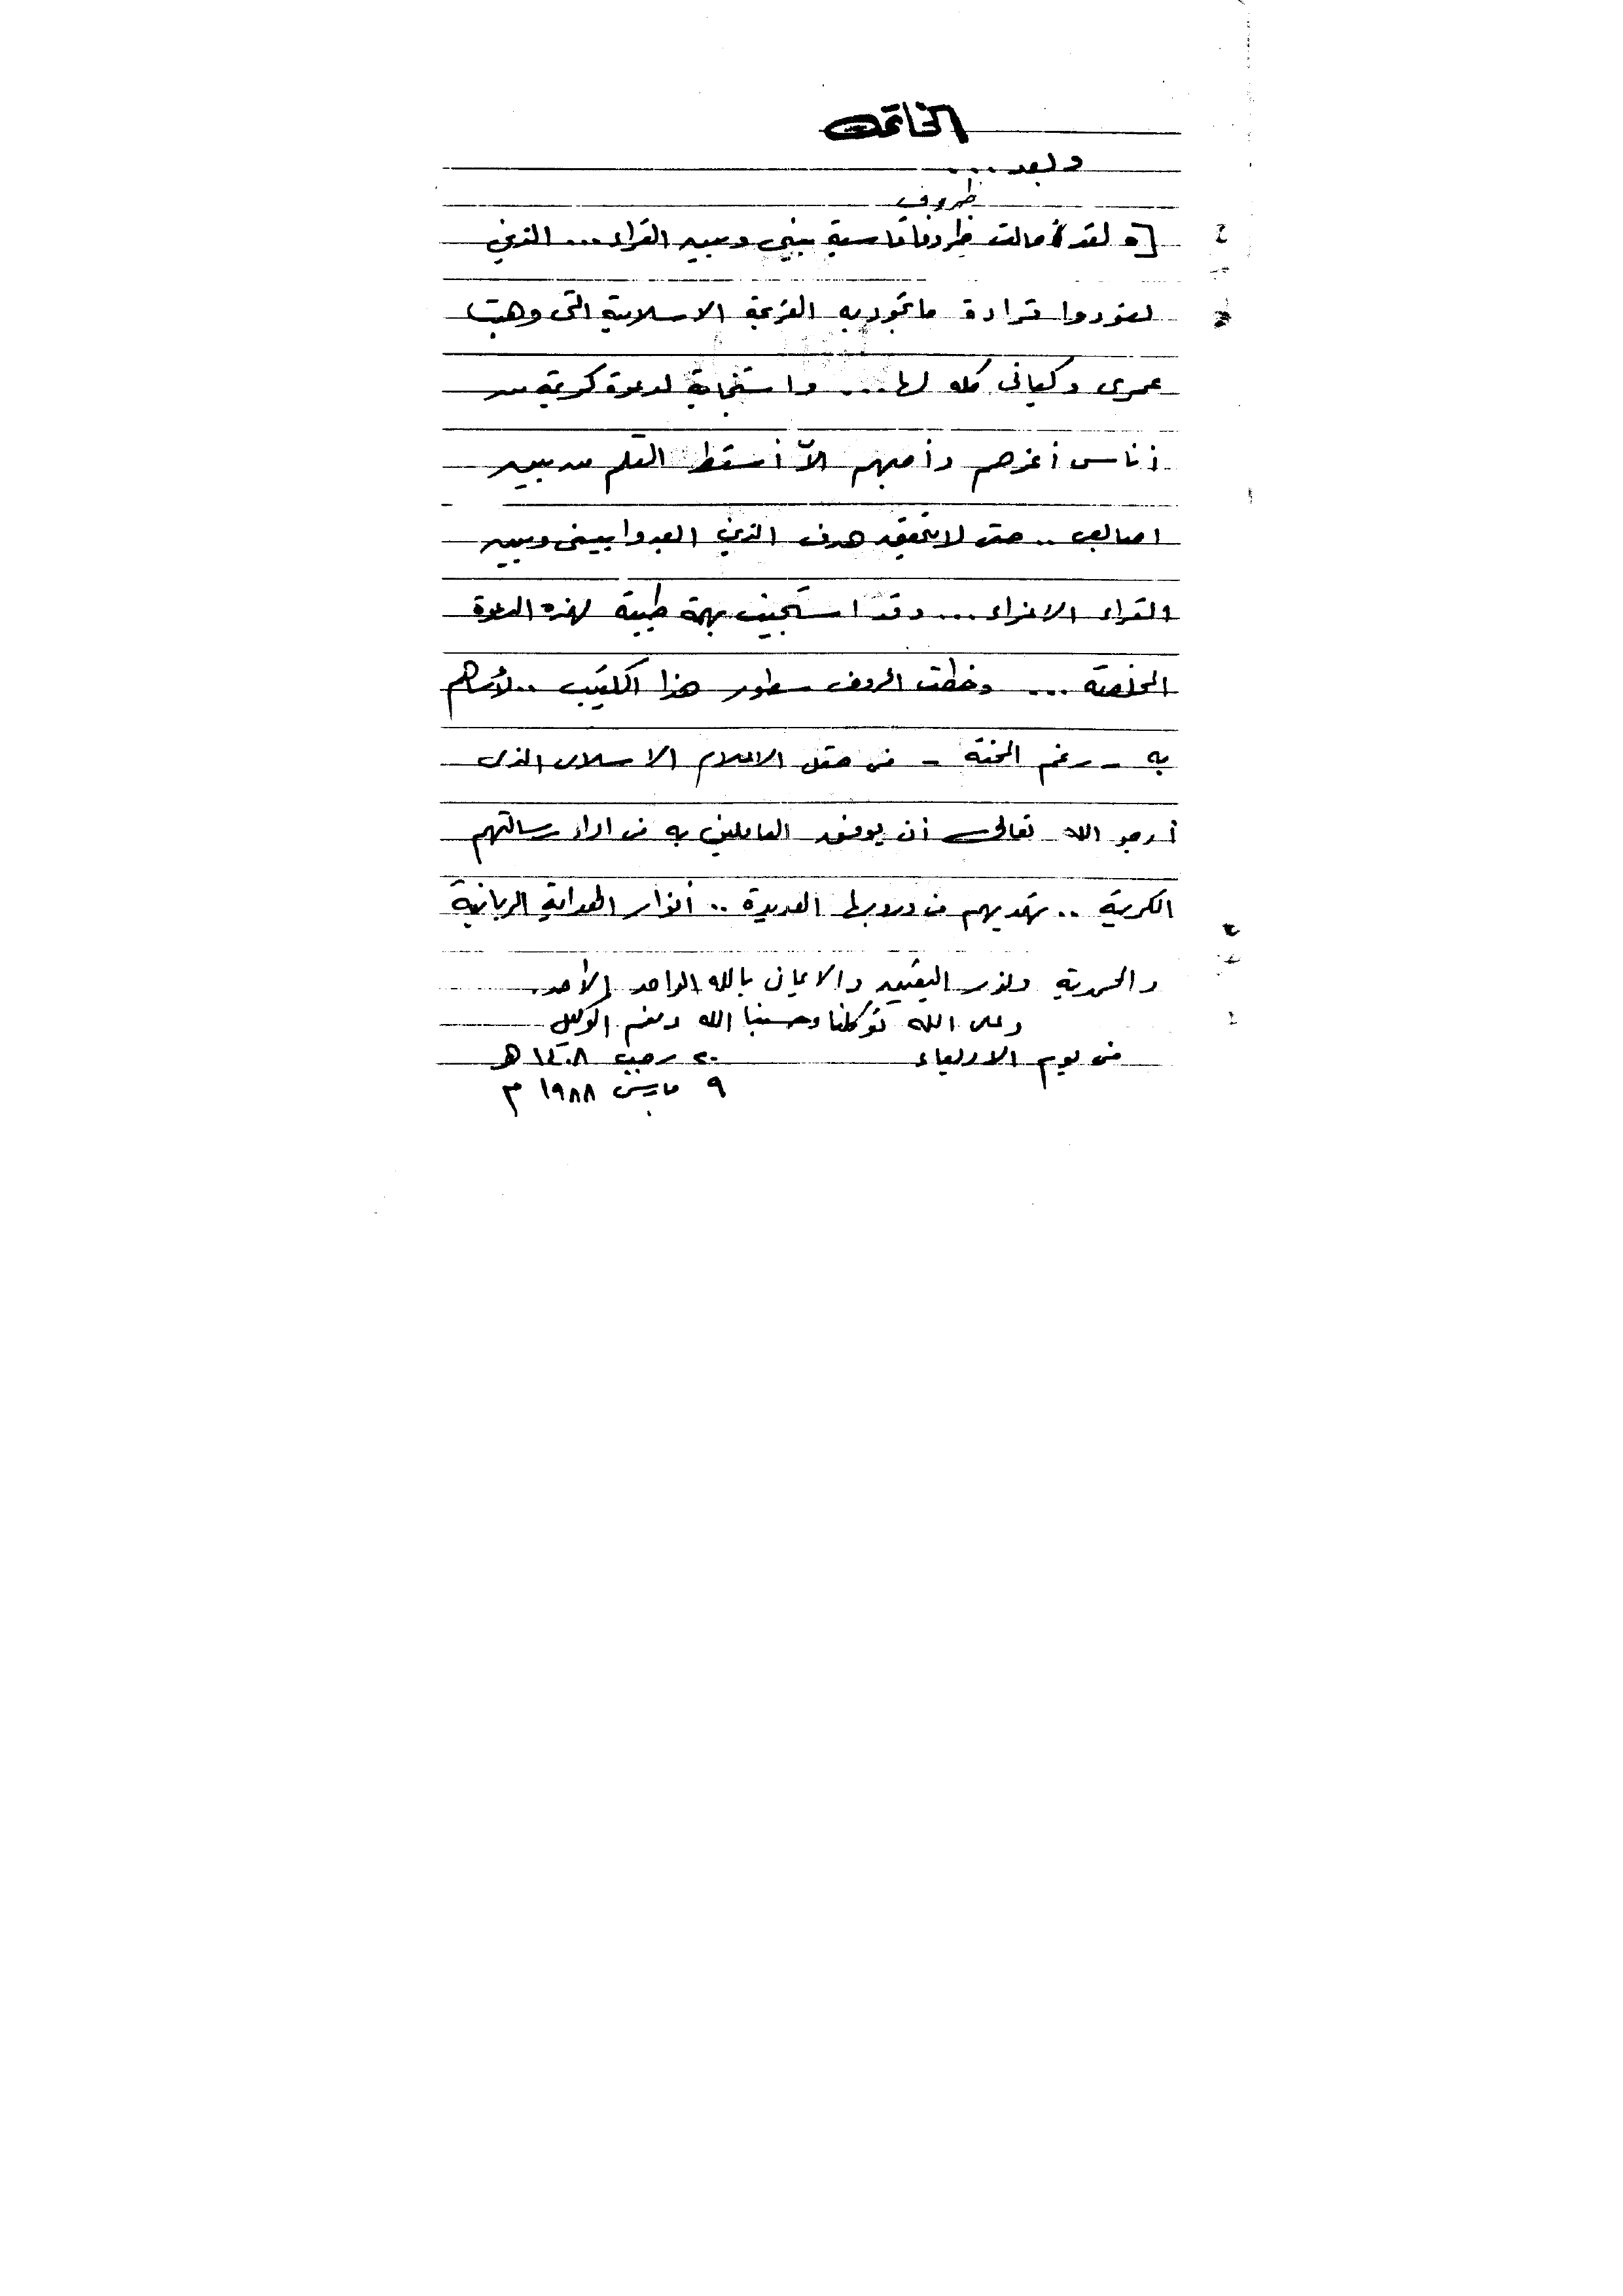 الخاتمة
وبعد ...
ظروف
لقد حالت ظروفا قاسية بيني وبين القراء ... الذين
تعودوا قراءة ما تجود به القريحة الاسلامية التى وهبت
عمرى وكيانى كله لها ... واستجابة لدعوة كريمة من
أناس أعزهم وأحبهم الاّ أسقط القلم من بين
اصابعى .. حتى لا يتحقق هدف الذين بينى وبين
القراء الاعزاء ... وقد استجبت بهمة طيبة لهذه الدعوة
المخلصة ... وخططت الحروف سطور هذا الكتيب .. لأساهم
به - رغم المحنة - فى حقل الاعلام الاسلامى الذى
أرجو الله تعالى أن يوفق العاملين به فى اداء رسالتهم
الكريمة .. تهديهم فى دروبها العديدة .. أنوار الهداية الربانية
والمحمدية ونور اليقين والايمان بالله الواحد الأحد.
وعلى الله توكلنا وحسبنا الله ونعم الوكيل
فى يوم الاربعاء ٢٠ رجب ١٤٠٨ هـ
٩ مارس ١٩٨٨ م